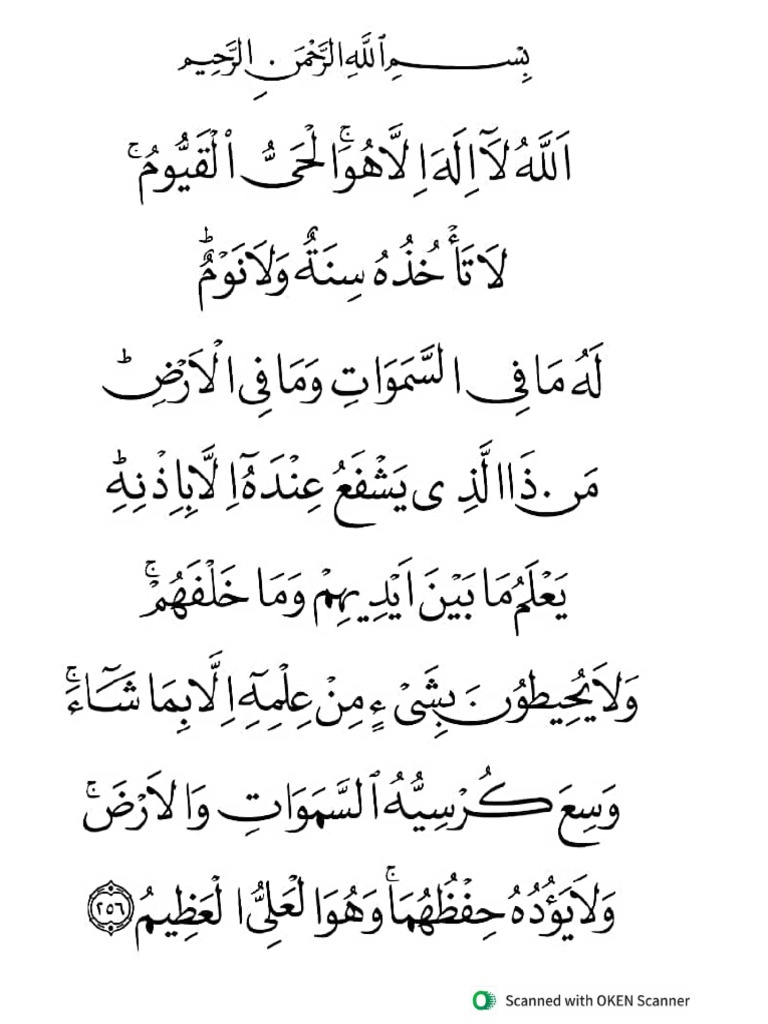 بِسْمِ ٱللَّهِ الرَّحْمَنِ الرَّحِيمِ
اَللَّهُ لَآ اِلَهَ اِلَّا هُوَ ۚ اَلْحَىُّ ٱلْقَيُّومُ ۚ
لَا تَأْخُذُهُ سِنَةٌ وَلَا نَوْمٌ ؕ
لَهُ مَا فِى السَّمَوَاتِ وَمَا فِى الْاَرْضِ ؕ
مَن ذَا الَّذِى يَشْفَعُ عِنْدَهُٓ اِلَّا بِاِذْنِهِ ؕ
يَعْلَمُ مَا بَيْنَ اَيْدِيهِمْ وَمَا خَلْفَهُمْ ۚ
وَلَا يُحِيطُونَ بِشَىْءٍ مِنْ عِلْمِهِٓ اِلَّا بِمَا شَآءَ ۚ
وَسِعَ كُرْسِيُّهُ ٱلسَّمَوَاتِ وَالْاَرْضَ ۚ
وَلَا يَؤُدُهُ حِفْظُهُمَا ۚ وَهُوَ الْعَلِىُّ الْعَظِيمُ ٢٥٦
Scanned with OKEN Scanner